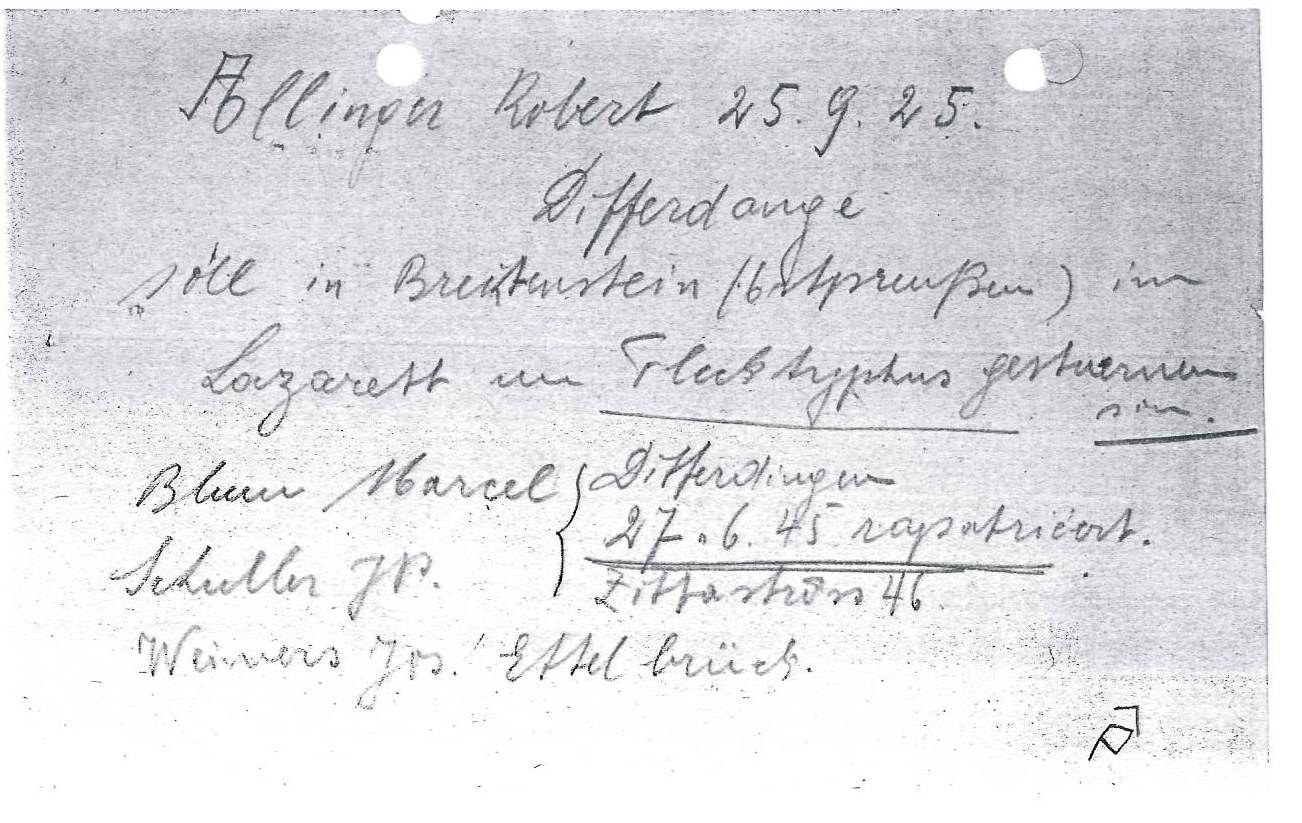 Allinger Robert 25.9.25.
Differdange
söll in Breitenstein (Ostpreußen) im
Lazarett un Flecktyphus gestuerwen
sin.
Blum Marcel { Differdingen
27.6.45 rapatriéert.
Schuller JP.
Zittastrôss 46.
Weimers Jos. Ettelbrück.